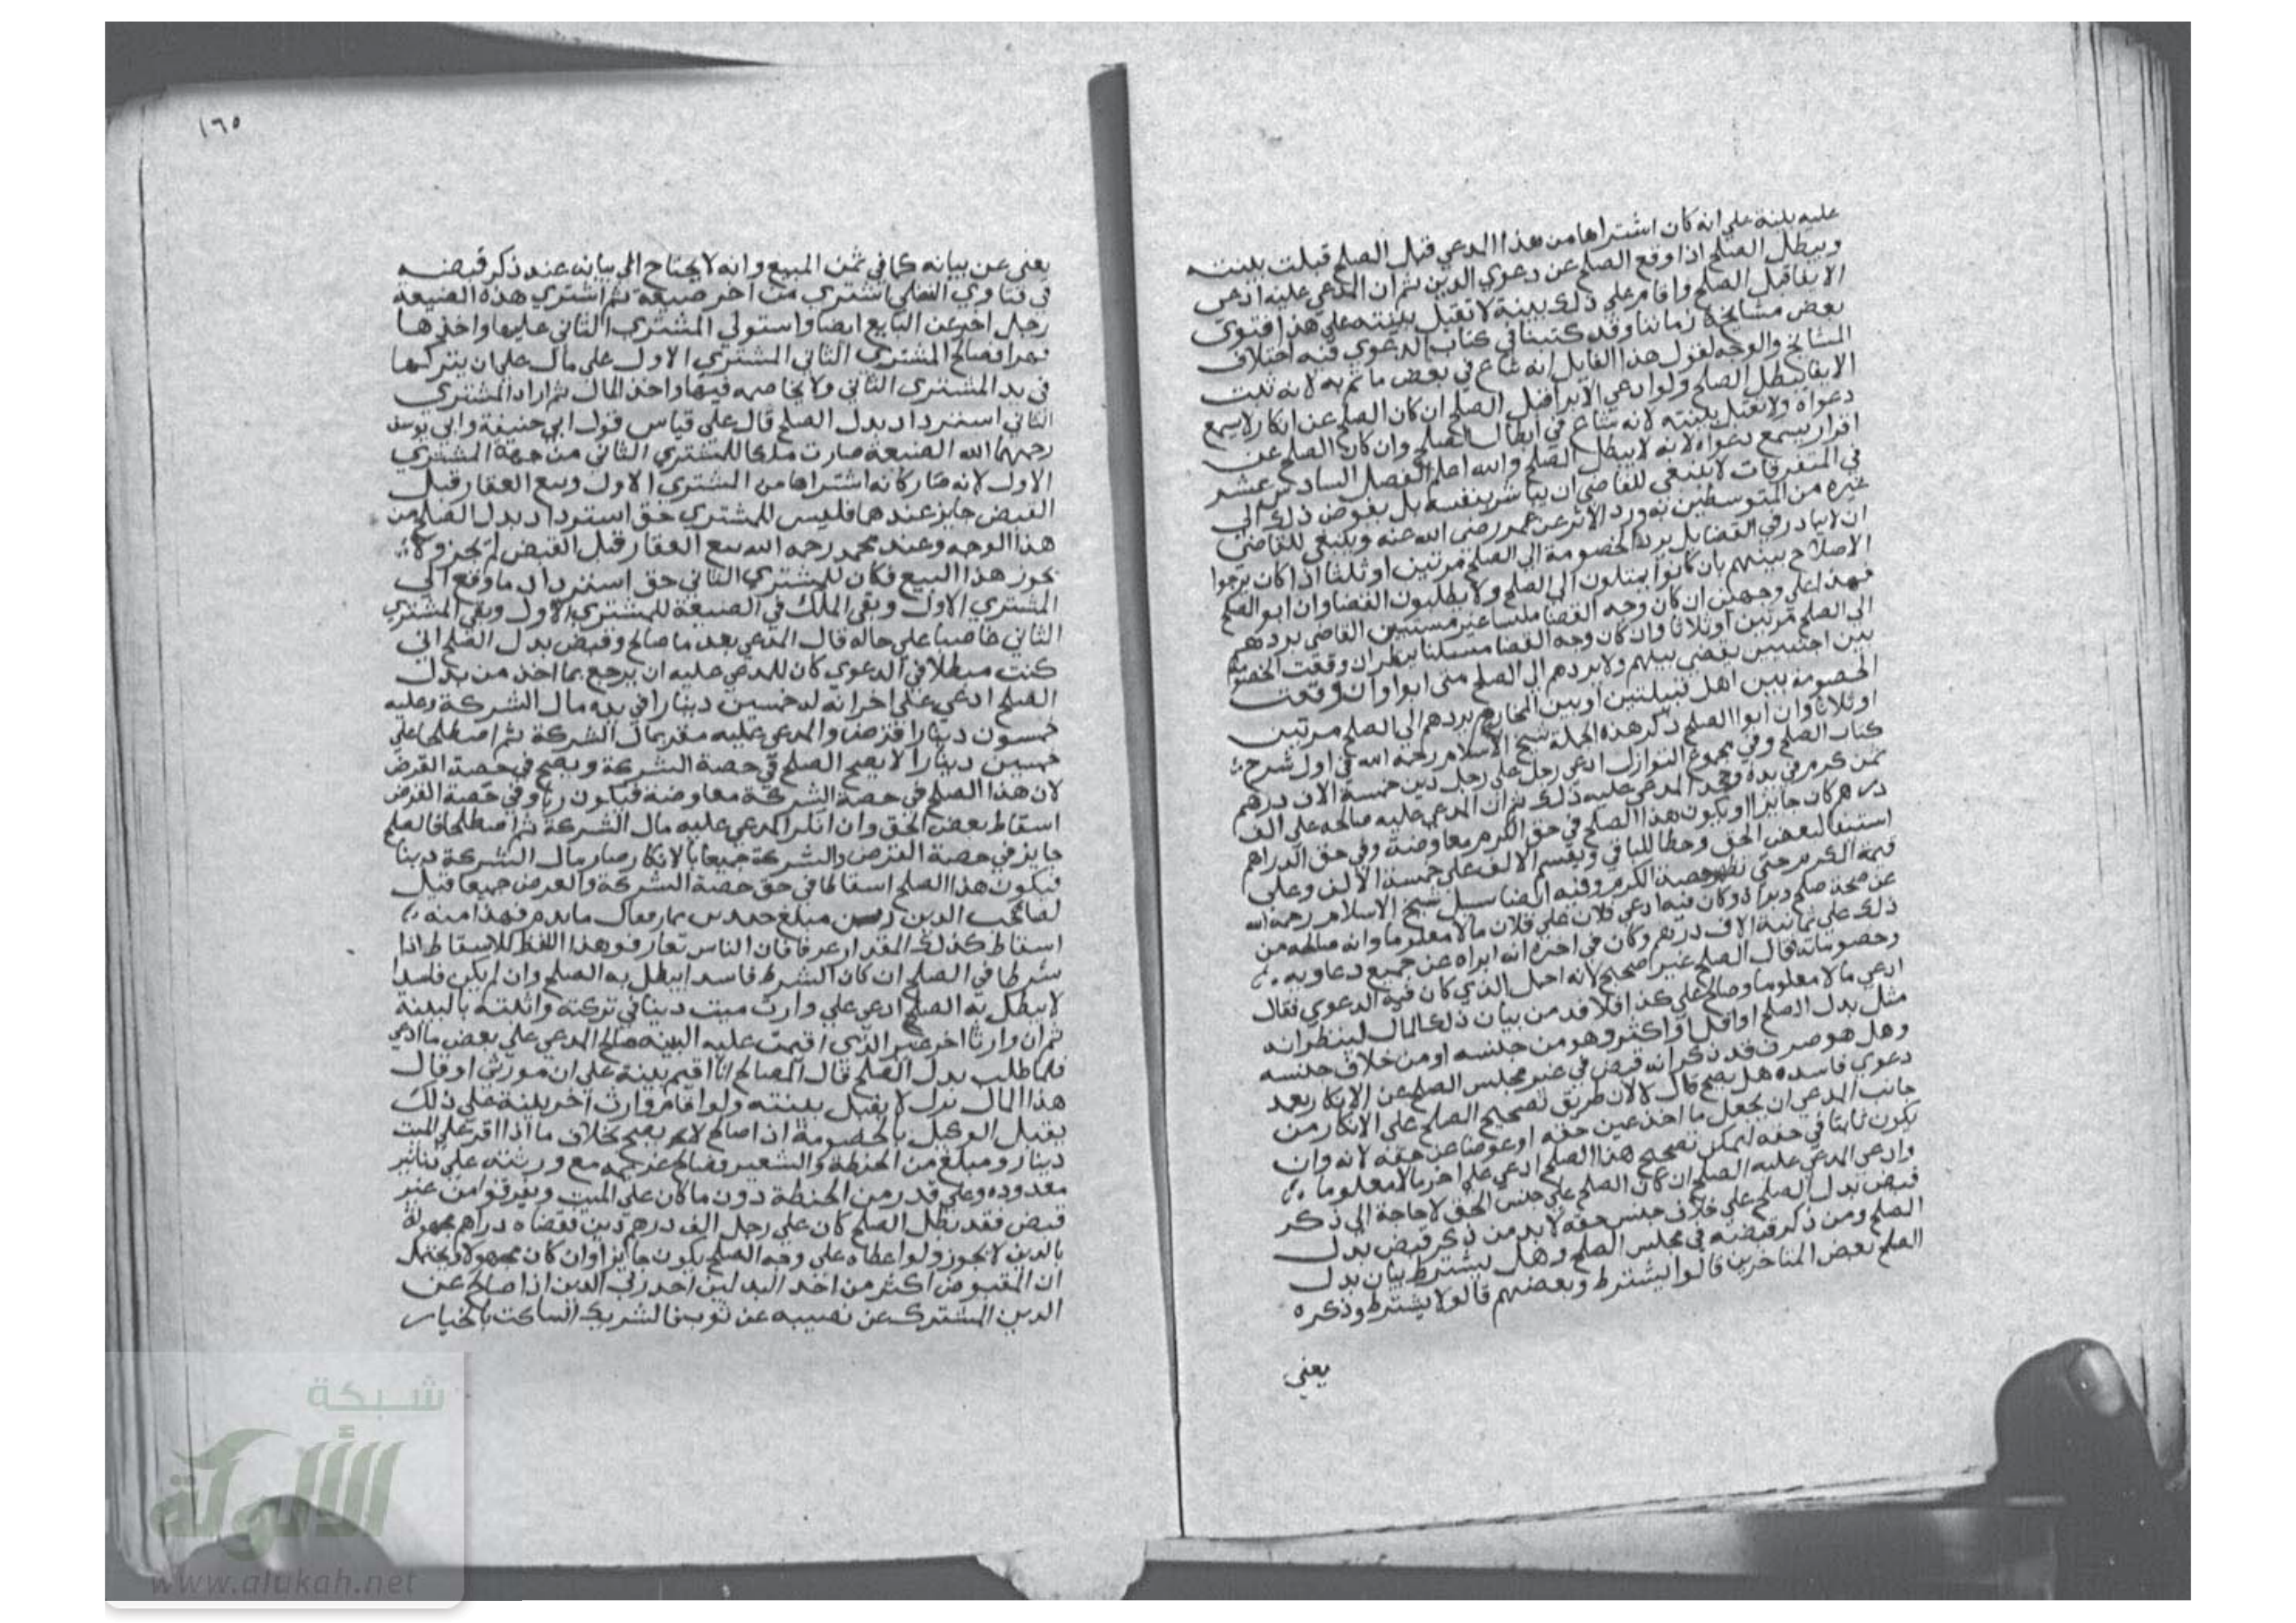 عليه بينة علي انه كان اشتراها من هذا المدعي قبل الصلح قبلت بينته
ويبطل الصلح اذا وقع الصلح عن دعوي الدين ثم ان المدعي عليه ادعي
الايفا قبل الصلح واقام علي ذلك بينة لا تقبل بينته علي هذا فتوي
بعض مشايخ زماننا وقد كتبنا في كتاب الدعوي فيه اختلاف
المشايخ والوجه لقول هذا القايل انه ساع في بعض ما تم به لانه تبت
الايفا يبطل الصلح ولو ادعي الابرا قبل الصلح ان كان الصلح عن انكار لا يسمع
دعواه ولا تقبل بينته لانه ساع في ابطال الصلح وان كان الصلح عن
اقرار يسمع دعواه لانه لا يبطل الصلح والله اعلم الفصل السادس عشر
في المتفرقات لا ينبغي للقاضي ان يباشر بنفسه بل يفوض ذلك الي
غيره من المتوسطين به ورد الاثر عن عمر رضي الله عنه وينبغي للقاضي
ان لا يبادر في القضا بل يرد الخصومة الي الصلح مرتين او ثلثا اذا كان يرجوا
الاصلاح بينهم بان كانوا يميلون الي الصلح ولا يطلبون القضا وان ابو الصلح
فهذا علي وجهين ان كان وجه القضا ملتبسا غير مستبين القاضي يردهم
الي الصلح مرتين او ثلاثا وان كان وجه القضا مستبينا ينظر ان وقعت الخصومة
بين اجنبيين يقضي بينهم ولا يردهم الي الصلح متي ابوا وان وقعت
الخصومة بين اهل قبيلتين او بين المحارم يردهم الي الصلح مرتين
او ثلاثا وان ابوا الصلح ذكر هذه الجملة شيخ الاسلام رحمه الله في اول شرح
كتاب الصلح وفي مجموع النوازل ادعي رجل علي رجل دين خمسة الاف درهم
ثمن كرم في يده وجحد المدعي عليه ذلك ثم ان المدعي عليه صالحه علي الف
درهم كان جايزا ويكون هذا الصلح في حق الكرم معاوضة وفي حق الدراهم
استيفا لبعض الحق وحطا للباقي ويقسم الالف علي خمسة الالف وعلي
قيمة الكرم حتي تظهر حصة الكرم وفيه ايضا سيل شيخ الاسلام رحمه الله
عن صحة صلح وكان فيه ادعي فلان علي فلان مالا معلوما وانه صالحه من
ذلك علي ثمانية الاف درهم وكان في اخره انه ابراه عن جميع دعاويه
وخصوماته قال الصلح غير صحيح لانه احمل الذي كان فيه الدعوي فقال
ادعي مالا معلوما وصالح علي كذا فلا بد من بيان ذلك المال لينظر انه
مثل بدل الصلح او اقل او اكثر وهو من جنسه او من خلاف جنسه
وهل هو صرف قد ذكر انه قبض في غير مجلس الصلح عن الانكار بعد
دعوي فاسده هل يصح قال لا لان طريق تصحيح الصلح علي الانكار من
جانب المدعي ان يجعل ما اخذ عين حقه او عوضا عن حقه لانه وان
يكون ثابتا في حقه ليمكن تصحيح هذا الصلح ادعي علي اخر مالا معلوما
وادعي المدعي عليه الصلح ان كان الصلح علي جنس الحق لا حاجة الي ذكر
قبض بدل الصلح علي خلاف جنس حقه لا بد من ذكر قبض بدل
الصلح ومن ذكر قبضه في مجلس الصلح وهل يشترط بيان بدل
الصلح بعض المتاخرين قالوا يشترط وبعضهم قالوا لا يشترط وذكره
يغني
١٦٥
يغني عن بيانه كما في ثمن المبيع وانه لا يحتاج الي بيانه عند ذكر قبضه
في فتاوي النسفي اشتري من اخر ضيعة ثم اشتري هذه الضيعة
رجل اخر عن البايع ايضا واستولي المشتري الثاني عليها واخذها
قهرا فصالح المشتري الثاني المشتري الاول علي مال علي ان يتركها
في يد المشتري الثاني ولا يخاصمه فيها واخذ المال ثم اراد المشتري
الثاني استرداد بدل الصلح قال علي قياس قول ابي حنيفة وابي يوسف
رحمهما الله الضيعة صارت ملكا للمشتري الثاني من جهة المشتري
الاول لانه صار كانه اشتراها من المشتري الاول وبيع العقار قبل
القبض جايز عندهما فليس للمشتري حق استرداد بدل الصلح من
هذا الوجه وعند محمد رحمه الله بيع العقار قبل القبض لم يجز ولا
يجوز هذا البيع فكان للمشتري الثاني حق استرداد ما دفع الي
المشتري الاول وبقي الملك في الضيعة للمشتري الاول وبقي المشتري
الثاني غاصبا علي حاله قال المدعي بعد ما صالح وقبض بدل الصلح اني
كنت مبطلا في الدعوي كان للمدعي عليه ان يرجع بما اخذ من بدل
الصلح ادعي علي اخر انه له خمسين دينارا في يده مال الشركة وعليه
خمسون دينارا قرض والمدعي عليه مقر بمال الشركة ثم اصطلحا علي
خمسين دينارا لا يصح الصلح في حصة الشركة ويصح في حصة القرض
لان هذا الصلح في حصة الشركة معاوضة فيكون ربا وفي حصة القرض
اسقاط بعض الحق وان انكر المدعي عليه مال الشركة ثم اصطلحا فالصلح
جايز في حصة القرض والشركة جميعا بالانكار صار مال الشركة دينا
فيكون هذا الصلح اسقاطا في حق حصة الشركة والقرض جميعا قيل
لصاحب الدين مبلغ فهذا منه
اسقاط كذلك المقدار عرفا فان الناس تعارفو هذا اللفظ للاسقاط اذا
شرطا في الصلح ان كان الشرط فاسدا يبطل به الصلح وان لم يكن فاسدا
لا يبطل به الصلح ادعي علي وارث ميت دينا في تركته واثبته بالبينة
ثم ان وارثا اخر غير الذي اقيمت عليه البينه صالح المدعي علي بعض ما ادعي
فلما طلب بدل الصلح قال المصالح انا اقيم بينة علي ان مورثي اوفاك
هذا المال لا يقبل بينته ولو اقام وارث اخر بينة علي ذلك
يقبل الوكيل بالخصومة اذا صالح لا يصح بخلاف ما اذا اقر علي الميت
دينار ومبلغ من الحنطة والشعير فصالح غريمه مع ورثته علي دنانير
معدوده وعلي قدر من الحنطة دون ما كان علي الميت وتفرقوا من غير
قبض فقد بطل الصلح كان علي رجل الف درهم دين فقضاه دراهم مجهولة
بالدين لا يجوز ولو اعطاه علي وجه الصلح يكون جايزا وان كان مجهولا يحتمل
ان المقبوض اكثر من اخد البدلين احد ربي الدين اذا صالح عن
الدين المشترك عن نصيبه عن ثوب فالشريك الساكت بالخيار
شبكة
الألوكة
www.alukah.net